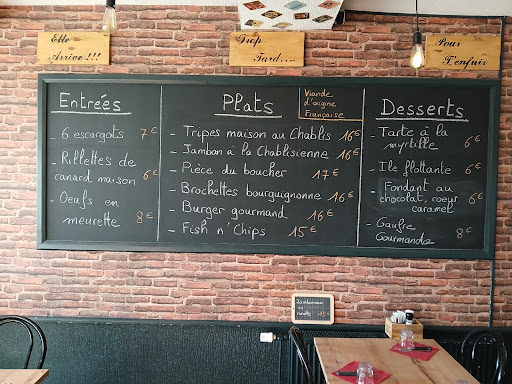 Elle
Arrive !!!
Trop
Tard....
Pour
T'enfuir
Entrées
6 escargots 7€
- Rillettes de
canard maison 6€
- Oeufs en
meurette 8€
Plats
Viande
d'origine
Française
- Tripes maison au Chablis 16€
- Jambon à la Chablisienne 16€
- Pièce du boucher 17€
- Brochettes bourguignonne 16€
- Burger gourmand 16€
- Fish n' Chips 15€
Desserts
- Tarte à la
myrtille 6€
- Ile flottante 6€
- Fondant au
chocolat, coeur
caramel 6€
- Gaufre
Gourmande 8€